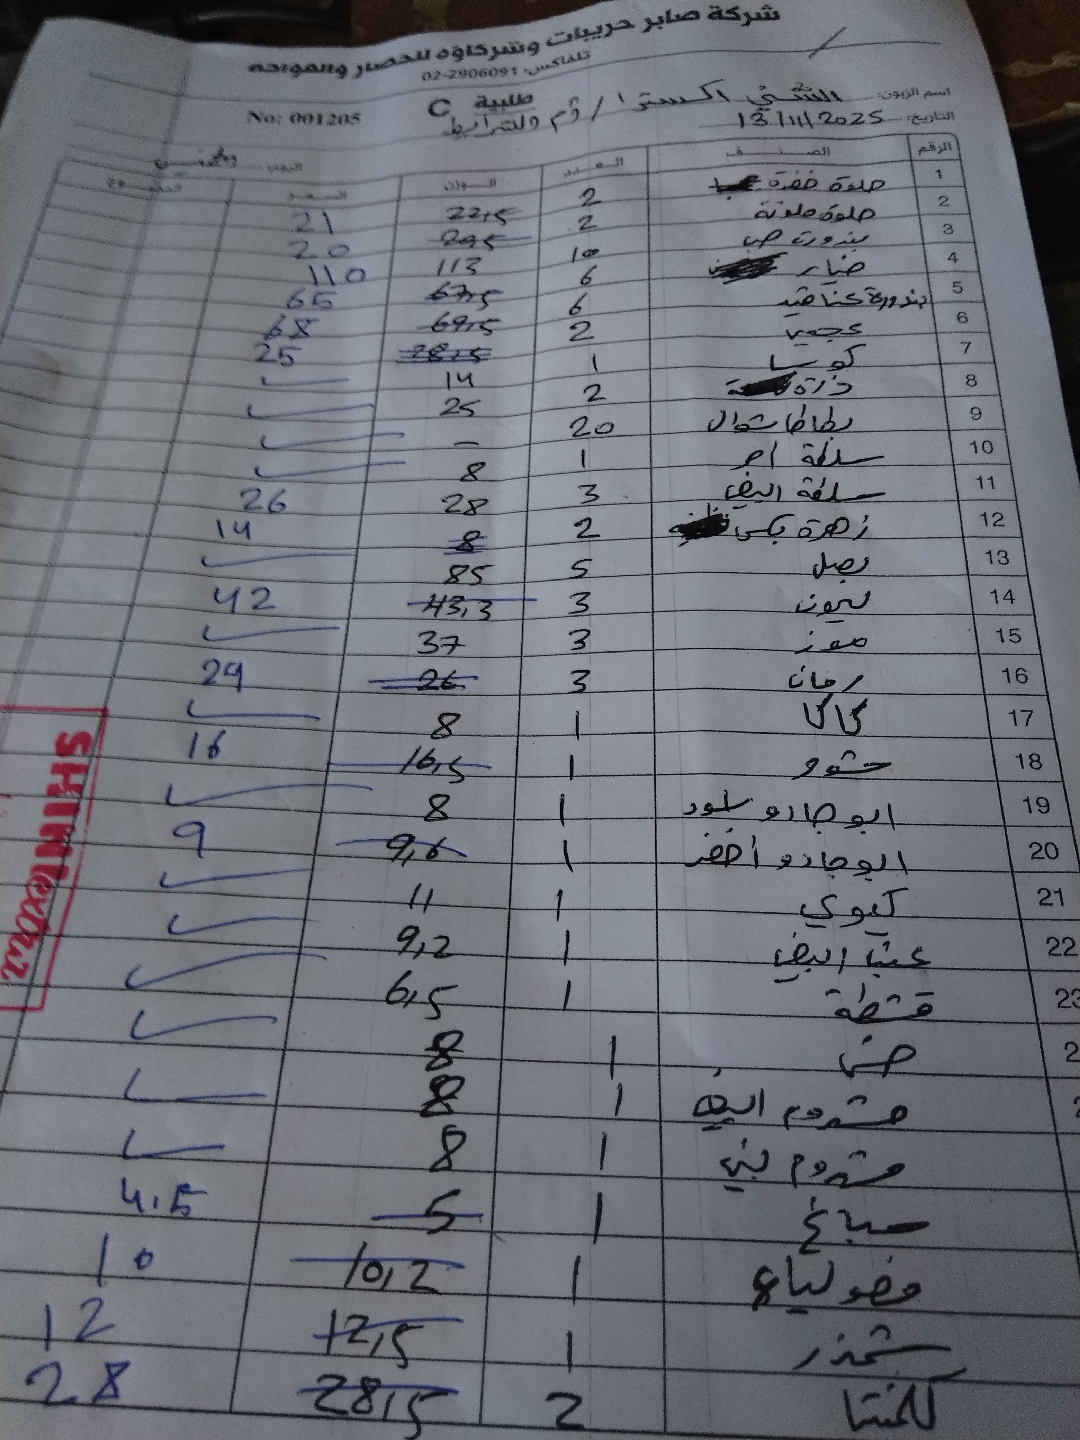 شركة صابر حريبات وشركاؤه للخضار والفواكه
تلفاكس: 02-2906091
طلبية C
No: 001205
اسم الزبون: الشني اكسترا / رم والترابط
التاريخ: 13/11/2025
اليوم
الرقم الصنف العدد الوزن السعر المجموع
1 حلوة خضرة 2 22,5 21
2 حلوة ملونة 2 20,5 20
3 بندورة حب 10 113 110
4 خيار 6 67,5 65
5 بندورة عناقيد 6 69,5 68
6 عجمي 2 28,5 25
7 كوسا 1 14 ✓
8 ذرة 2 25 ✓
9 بطاطا شوال 20 - ✓
10 سلطة احمر 1 8 ✓
11 سلطة ابيض 3 28 26
12 زهرة بكس 2 8 14
13 بصل 5 85 ✓
14 ليمون 3 43,3 42
15 موز 3 37 ✓
16 رمان 3 26 29
17 كاكا 1 8 ✓
18 1 16,5 16
19 ابوجادو اسود 1 8 ✓
20 ابوجادو اخضر 1 9,6 9
21 كيوي 1 11 ✓
22 عنب ابيض 1 9,2 ✓
23 قشطة 1 6,5 ✓
خس 1 8 ✓
مشروم ابيض 1 8 ✓
مشروم بني 1 8 ✓
صباغ 1 5 4.5
فصوليا ع 1 10,2 10
شمندر 1 12,5 12
كلمنتا 2 28,5 28
SHINI extra